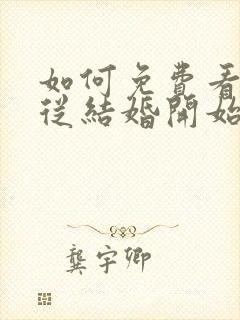 如何免費看
從結婚開始
龔宇卿